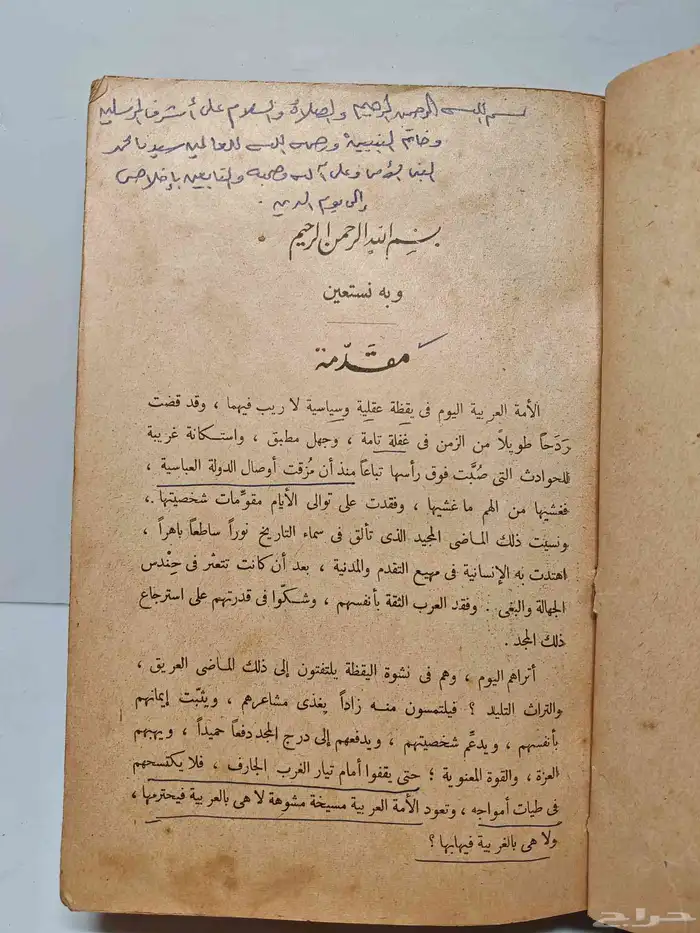 بسم الله الرحمن الرحيم والصلاة والسلام على أشرف المرسلين
وخاتم النبيين ورحمة الله للعالمين سيدنا محمد
النبي وعلى آله وصحبه والتابعين بإخلاص
إلى يوم الدين
بسم الله الرحمن الرحيم
وبه نستعين
مقدّمة
الأمة العربية اليوم فى يقظة عقلية وسياسية لا ريب فيهما ، وقد قضت
رَدَحاً طويلاً من الزمن فى غفلة تامة ، وجهل مطبق ، واستكانة غريبة
للحوادث التى صُبَّت فوق رأسها تباعاً منذ أن مُزقت أوصال الدولة العباسية ،
فغشيها من الهم ما غشيها ، وفقدت على توالى الأيام مقوِّمات شخصيتها ،
ونسيت ذلك الماضى المجيد الذى تألق فى سماء التاريخ نوراً ساطعاً باهراً ،
اهتدت به الإنسانية فى مهيع التقدم والمدنية ، بعد أن كانت تتعثر فى حِنْدس
الجهالة والبغى . وفقد العرب الثقة بأنفسهم ، وشكّوا فى قدرتهم على استرجاع
ذلك المجد .
أتراهم اليوم ، وهم فى نشوة اليقظة يلتفتون إلى ذلك الماضى العريق ،
والتراث التليد ؟ فيلتمسون منه زاداً يغذى مشاعرهم ، ويثبّت إيمانهم
بأنفسهم ، ويدعِّم شخصيتهم ، ويدفعهم إلى درج المجد دفعاً حميداً ، ويهبهم
العزة ، والقوة المعنوية ؛ حتى يقفوا أمام تيار الغرب الجارف ، فلا يكتسحهم
فى طيات أمواجه ، وتعود الأمة العربية مسيخة مشوهة لا هى بالعربية فيحترمها ،
ولا هى بالغربية فيهابها ؟
حراج